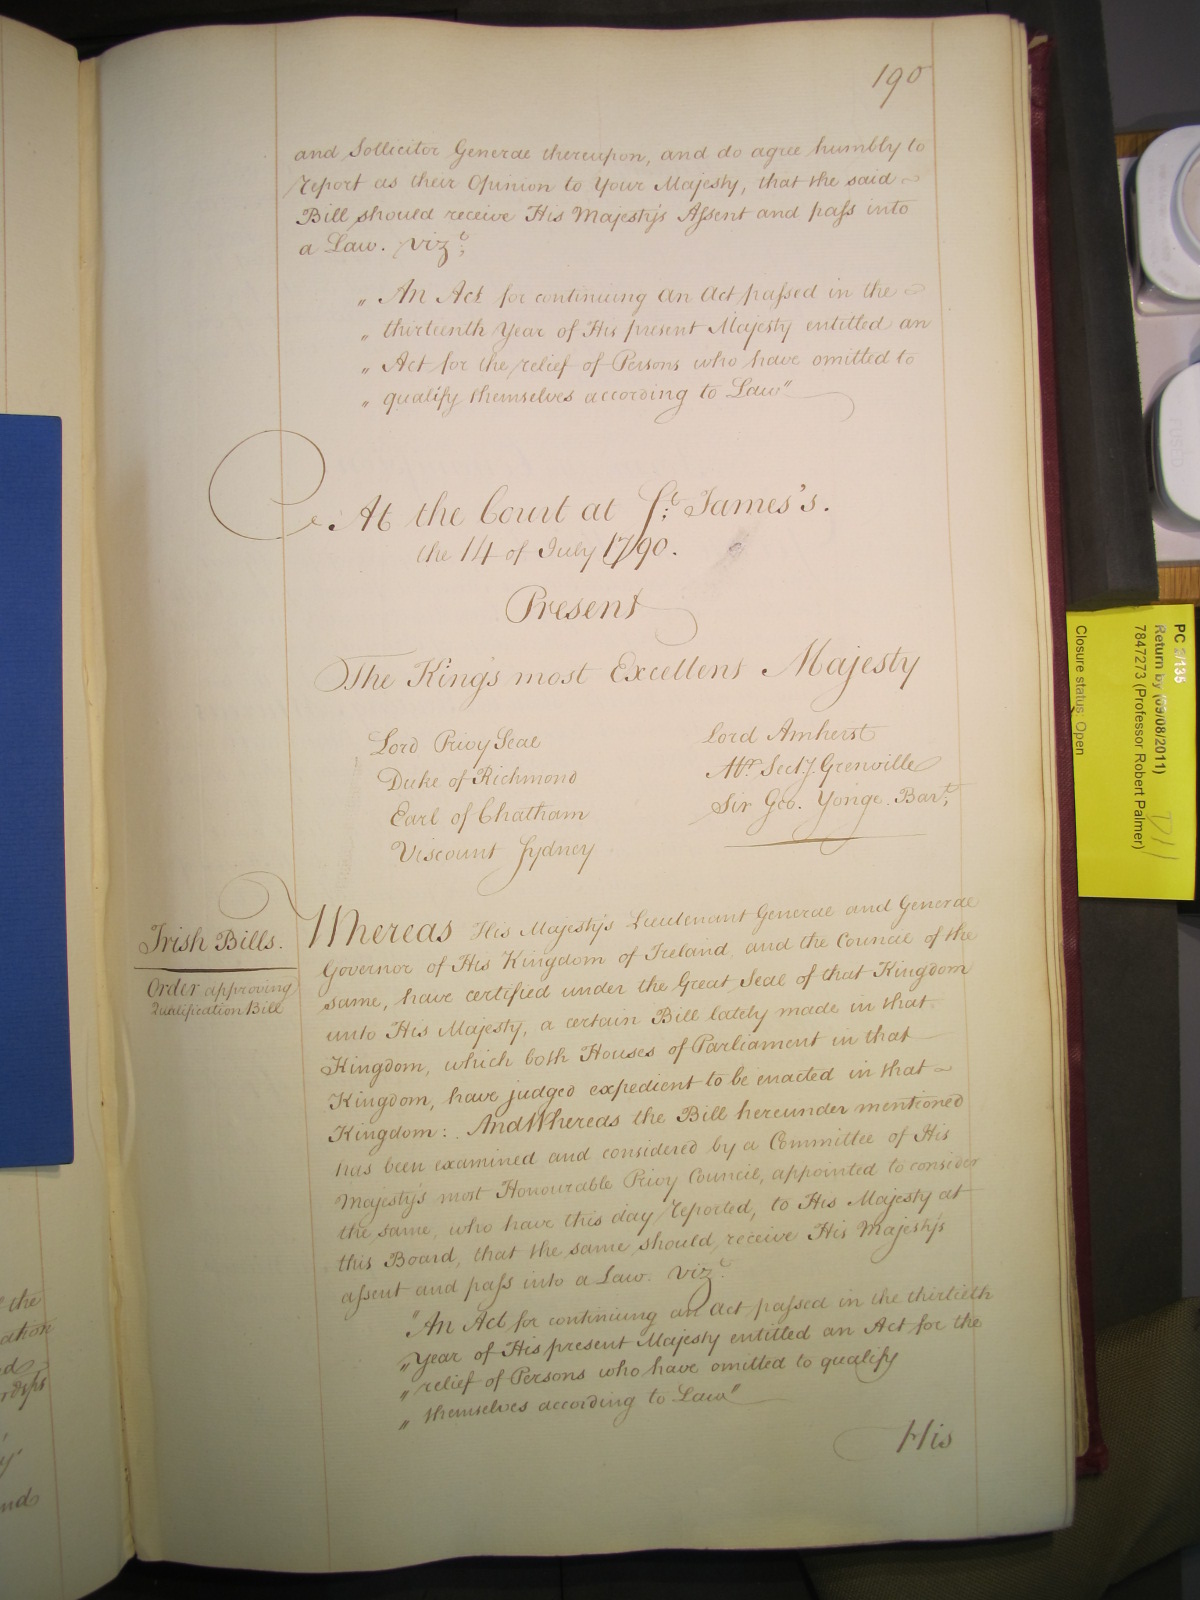 190
and Sollicitor General thereupon, and do agree humbly to
report as their Opinion to Your Majesty, that the said
Bill should receive His Majesty's Assent and pass into
a Law. Vizt.
" An Act for continuing an Act passed in the
" thirteenth Year of His present Majesty entitled an
" Act for the relief of Persons who have omitted to
" qualify themselves according to Law"
At the Court at St. James's.
the 14 of July 1790.
Present
The King's most Excellent Majesty
Lord Privy Seal
Duke of Richmond
Earl of Chatham
Viscount Sydney
Lord Amherst
Mr. Secry. Grenville
Sir Geo. Yonge. Bart.
Irish Bills.
Order approving
Qualification Bill
Whereas His Majesty's Lieutenant General and General
Governor of His Kingdom of Ireland, and the Council of the
same, have certified under the Great Seal of that Kingdom
unto His Majesty, a certain Bill lately made in that
Kingdom, which both Houses of Parliament in that
Kingdom, have judged expedient to be enacted in that
Kingdom: And Whereas the Bill hereunder mentioned
has been examined and considered by a Committee of His
Majesty's most Honourable Privy Council, appointed to consider
the same, who have this day reported, to His Majesty at
this Board, that the same should receive His Majesty's
assent and pass into a Law. Vizt.
"An Act for continuing an act passed in the thirtieth
"Year of His present Majesty entitled an Act for the
" relief of Persons who have omitted to qualify
" themselves according to Law"
His
PC 2/135
Return by (09/08/2011)
7847273 (Professor Robert Palmer)
Closure status: Open
D11
the
ation
nd